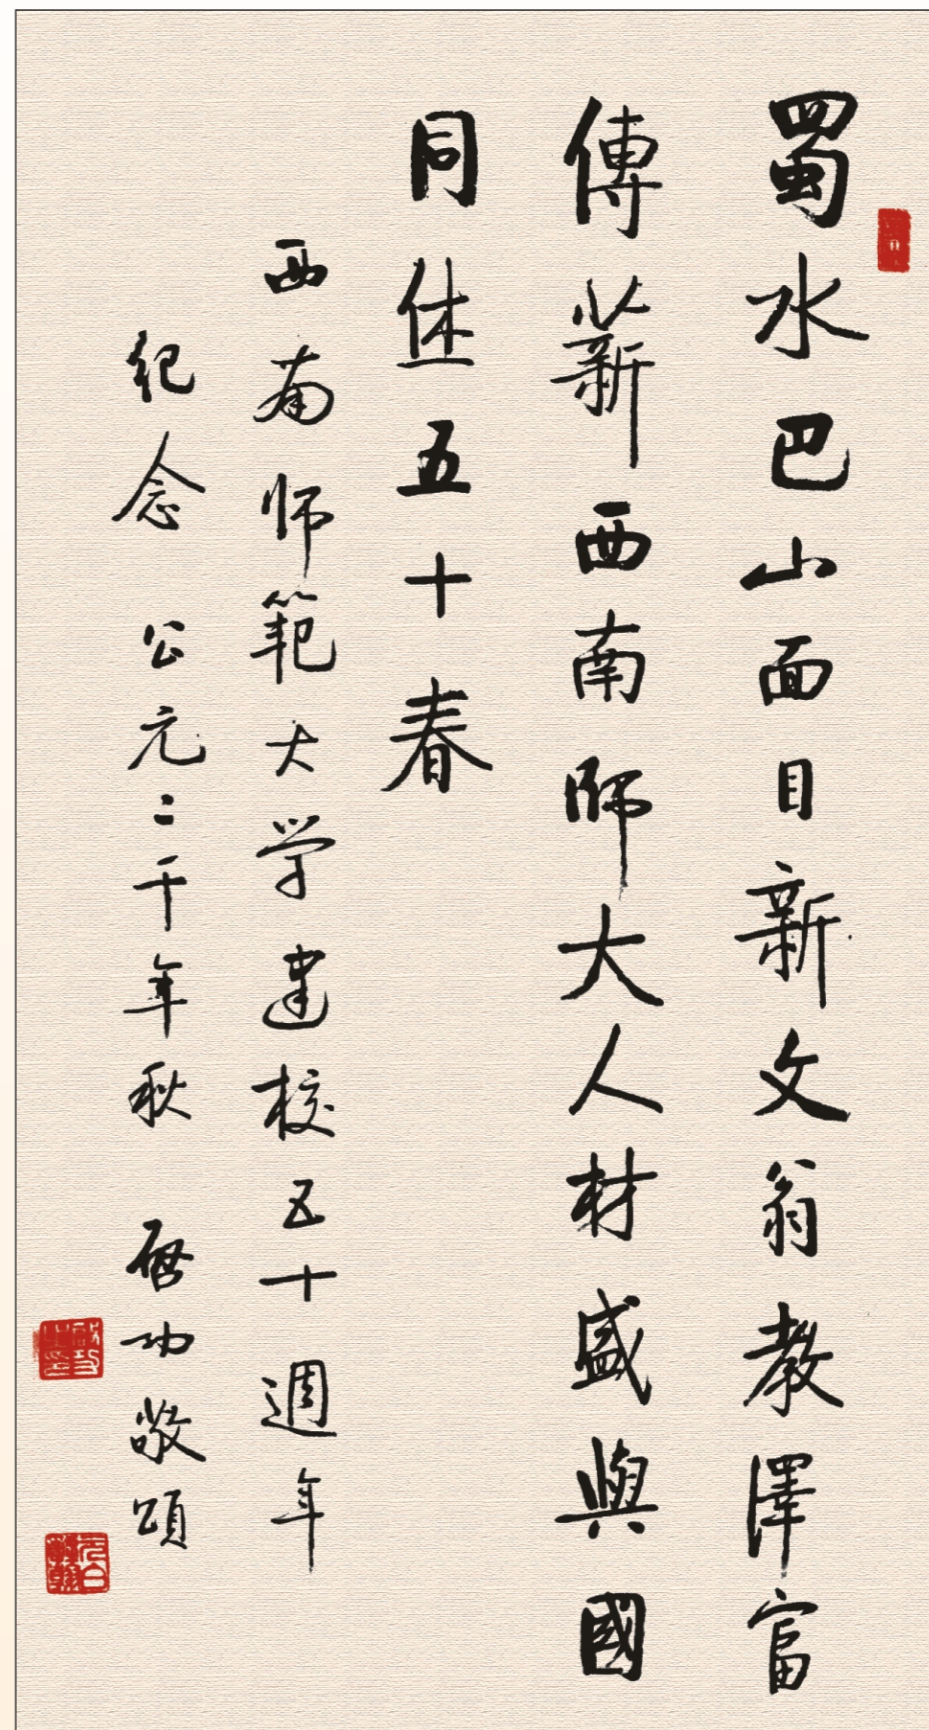 蜀水巴山面目新文翁教澤富
傳薪西南師大人材盛與國
同休五十春
西南师範大学建校五十週年
纪念 公元二千年秋 启功敬頌
元白